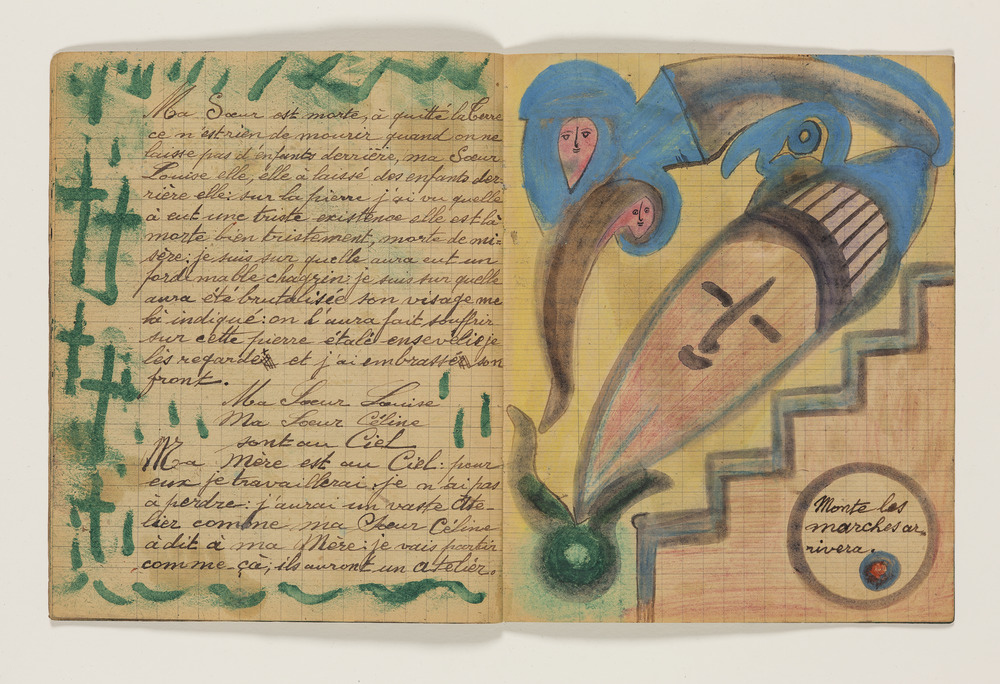 Ma Sœur est morte, à quitté la Terre
ce n'est rien de mourir quand on ne
laisse pas d'enfants derrière, ma Sœur
Louise elle, elle à laissé des enfants der-
rière elle: sur la pierre j'ai vu quelle
à eut une triste existence elle est là
morte bien tristement, morte de mi-
sère: je suis sur quelle aura eut un
fordimable chagrin: je suis sur quelle
aura été brutalisée son visage me
là indiqué: on l'aura fait souffrir
sur cette pierre étalé ensevelie je
lès regardér et j'ai embrassér son
front.
Ma Sœur Louise
Ma Sœur Céline
sont au Ciel
Ma Mère est au Ciel: pour
eux je travaillerai, je n'ai pas
à perdre: j'aurai un vaste Ate-
lier comme ma Sœur Céline
à dit à ma Mère: je vais partir
comme çà; ils auront un atelier.
Monte les
marches ar
rivera.